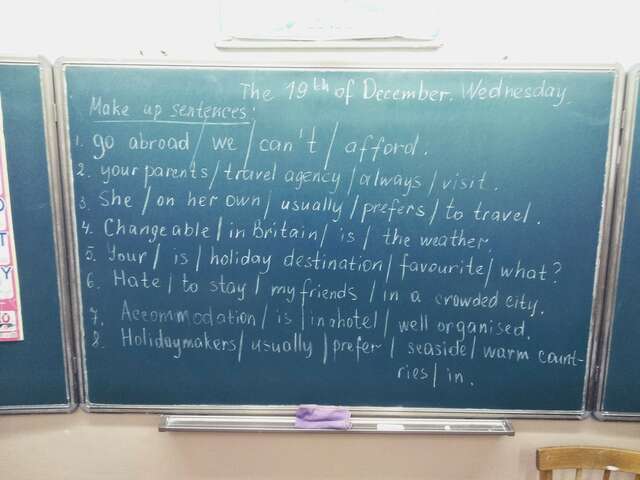 The 19th of December. Wednesday.
Make up sentences:
1. go abroad / we / can't / afford.
2. your parents / travel agency / always / visit.
3. She / on her own / usually / prefers / to travel.
4. Changeable / in Britain / is / the weather.
5. Your / is / holiday destination / favourite / what?
6. Hate / to stay / my friends / in a crowded city.
7. Accommodation / is / in a hotel / well organised.
8. Holidaymakers / usually / prefer / seaside / warm count-
ries / in.